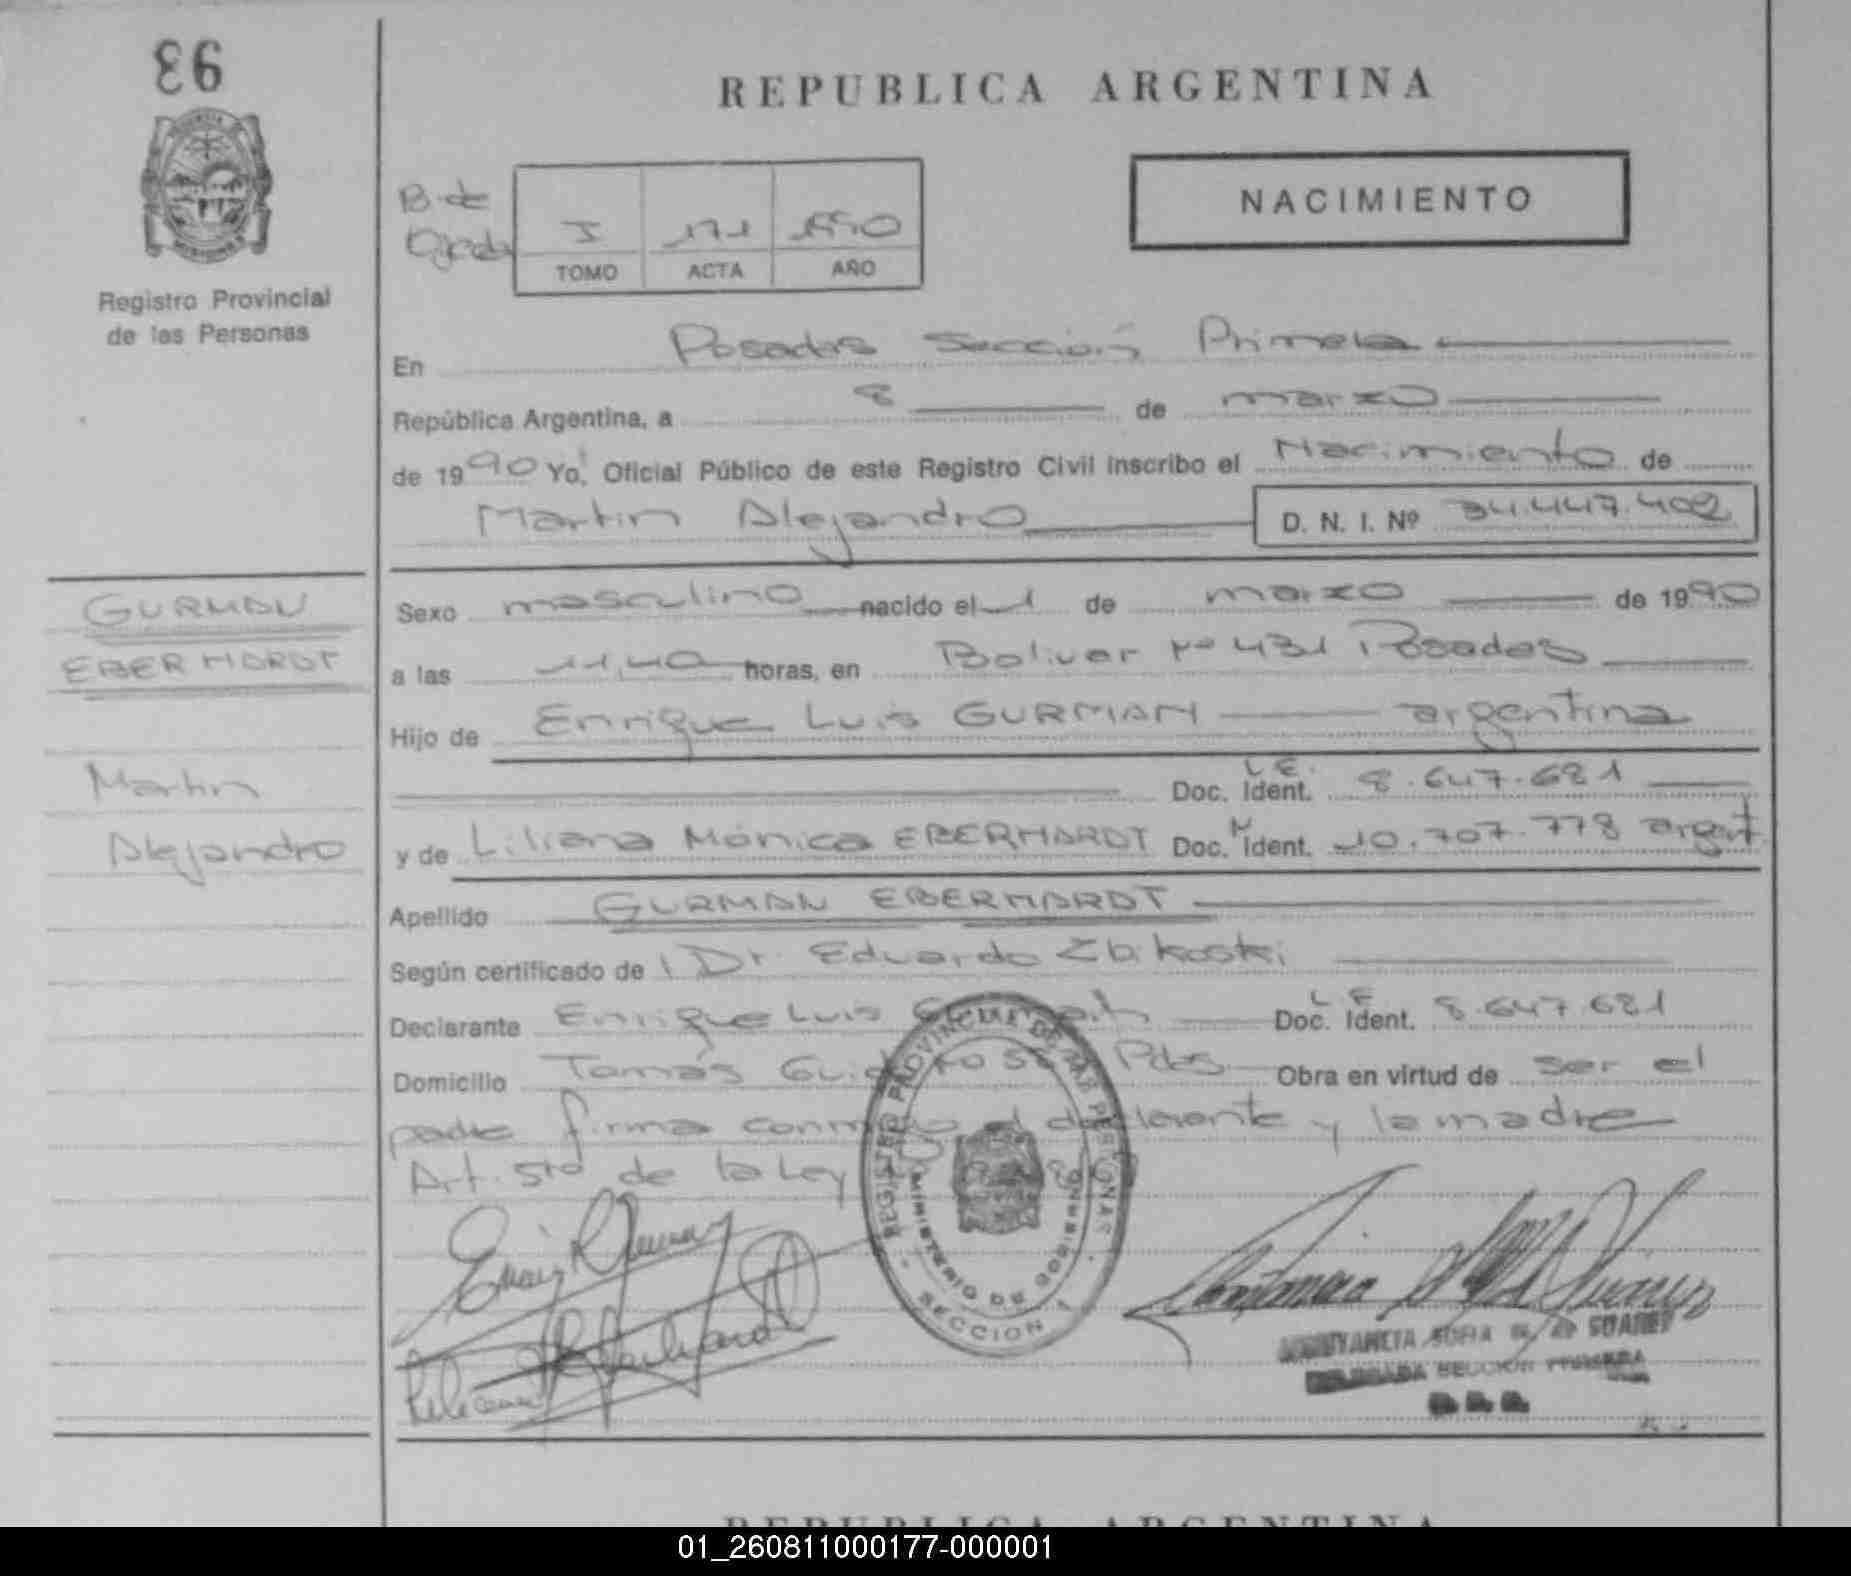 93
REPUBLICA ARGENTINA
Registro Provincial
de las Personas
B. de
Ojeda
I 171 1990
TOMO ACTA AÑO
NACIMIENTO
En Posadas Sección Primera
República Argentina, a 8 de marzo
de 1990 Yo, Oficial Público de este Registro Civil inscribo el Nacimiento de
Martin Alejandro D. N. I. Nº 34.447.402
GURMAN
EBERHARDT
Martin
Alejandro
Sexo masculino nacido el 1 de marzo de 1990
a las 11,40 horas, en Bolivar Nº 431 Posadas
Hijo de Enrique Luis GURMAN argentina
Doc. Ident. L E. 8.647.681
y de Liliana Mónica EBERHARDT Doc. N Ident. 10.707.778 argent
Apellido GURMAN EBERHARDT
Según certificado de Dr. Eduardo Zbikoski
Declarante Enrique Luis Doc. Ident. L E 8.647.681
Domicilio Tomás Pdas Obra en virtud de ser el
padre firma conmigo el declarante y la madre
Art. 5to de la Ley
REGISTRO PROVINCIAL DE LAS PERSONAS
MINISTERIO DE GOBIERNO
SECCION 1
SOFIA DE SUAREZ
SECCION PRIMERA
REPUBLICA ARGENTINA
01_260811000177-000001